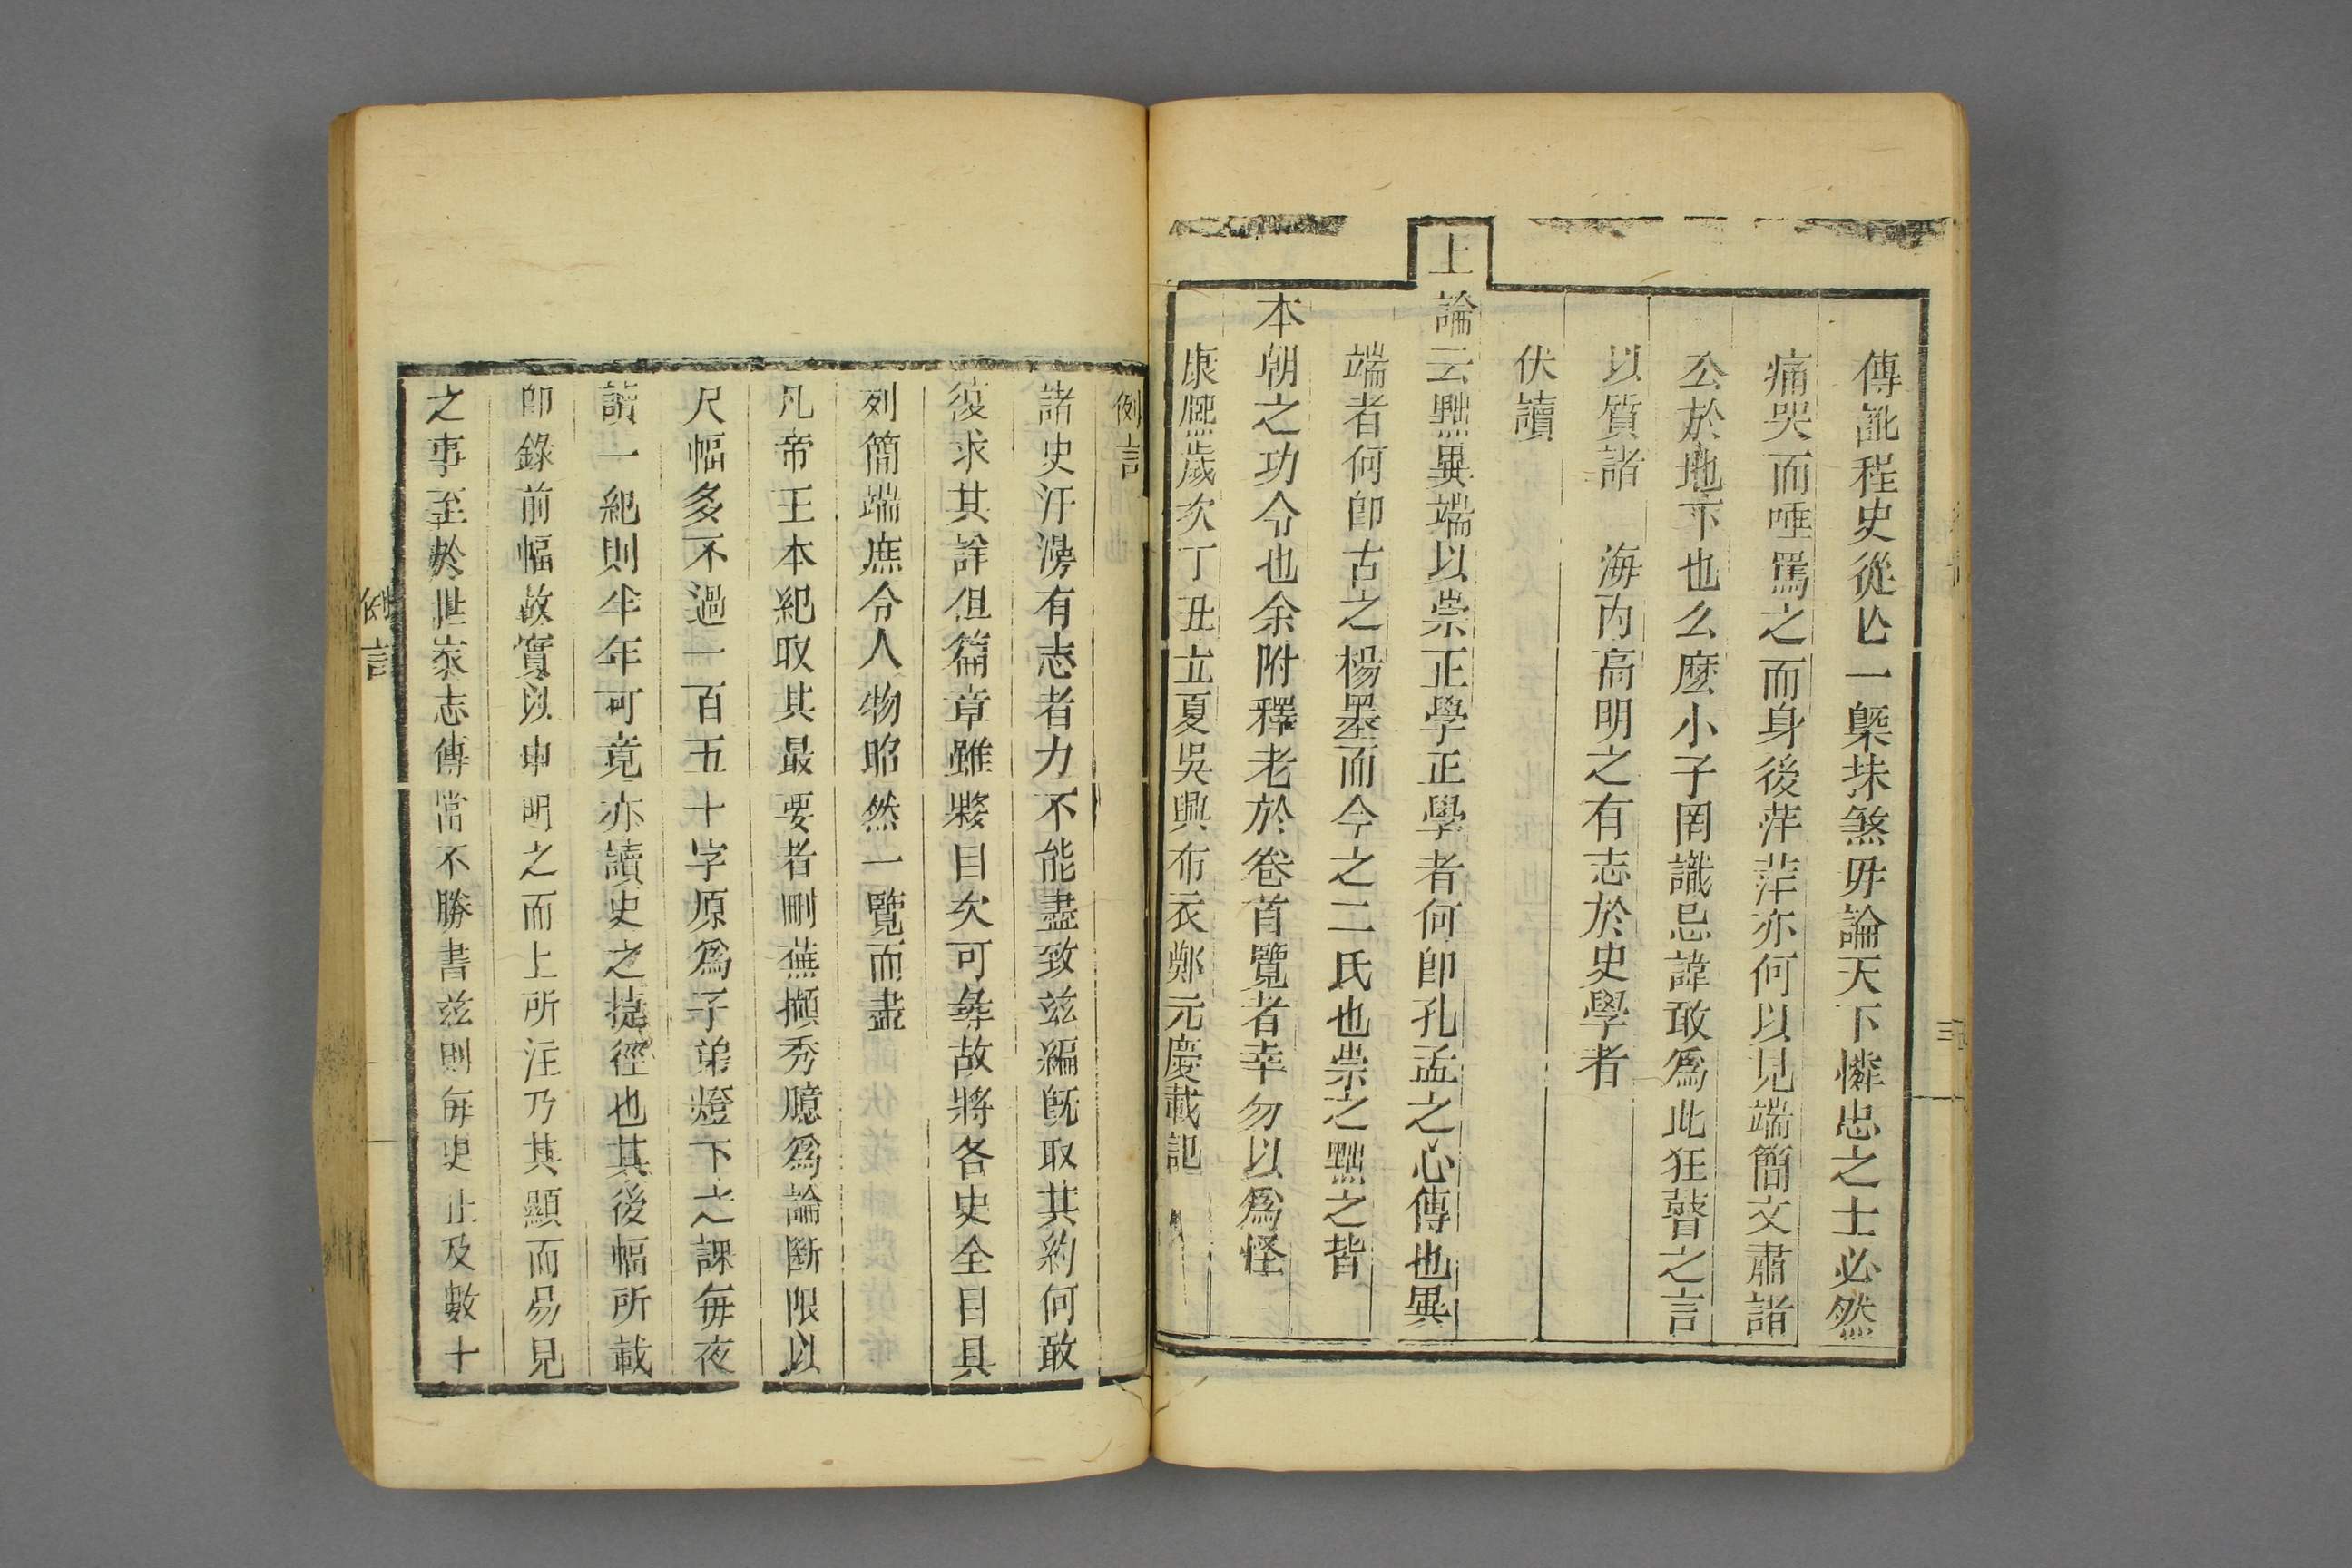 傳訛程史從亾一槩抹煞毋論天下憐忠之士必然
痛哭而唾罵之而身後茫茫亦何以見端簡文肅諸
公於地下也么麼小子罔識忌諱敢爲此狂瞽之言
以質諸　海內高明之有志於史學者
伏讀
上論云黜異端以崇正學正學者何卽孔孟之心傳也異
端者何卽古之楊墨而今之二氏也崇之黜之皆
本朝之功令也余附釋老於卷首覽者幸勿以爲怪
康熙歲次丁丑立夏吳興布衣鄭元慶載記
例言
諸史汗漫有志者力不能盡致兹編旣取其約何敢
復求其詳但篇章雖夥目次可彝故將各史全目具
列簡端庶令人物昭然一覽而盡
凡帝王本紀取其最要者刪蕪擷秀臆爲論斷限以
尺幅多不過一百五十字原爲子弟燈下之課每夜
讀一紀則半年可竟亦讀史之捷徑也其後幅所載
卽錄前幅故實以申明之而上所注乃其顯而易見
之事至於世家志傳當不勝書兹則每史止及數十
例言
三